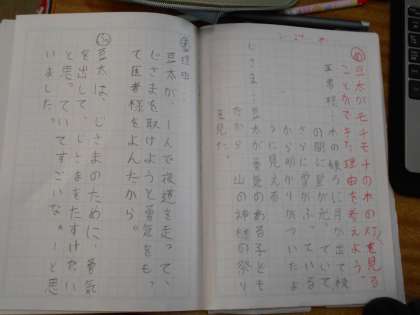 豆太がモチモチの木の灯を見る
ことができた理由を考えよう。
医者様…木の後ろに月が出て枝
の間に星が光っていて
さらに雪がふっている
から明かりがついたよ
うに見える
じさま…豆太が勇気のある子ども
だから山の神様の祭り
を見た。
豆太が、一人で夜道を走って、
じさまを助けようと勇気をもっ
て医者様をよんだから。
豆太は、じさまのために、勇気
を出して、じさまをたすけたい
と思っていてすごいなぁーと思
いました。